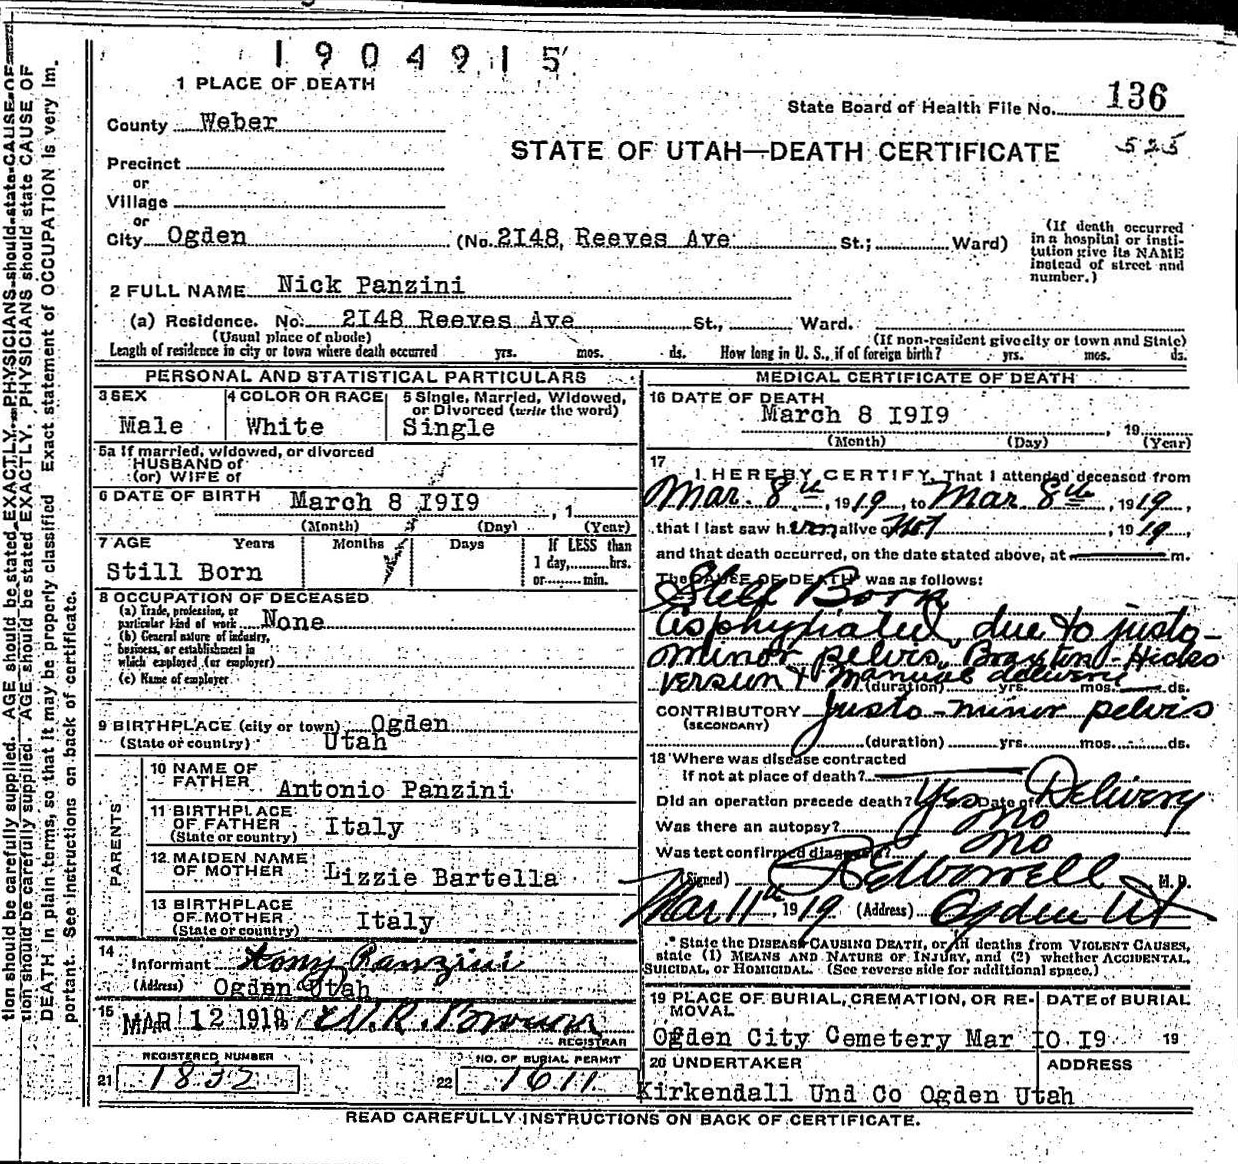 1904915
1 PLACE OF DEATH
State Board of Health File No. 136
County Weber
STATE OF UTAH—DEATH CERTIFICATE
525
Precinct
or
Village
or
City Ogden (No. 2I48, Reeves Ave St.; Ward)
(If death occurred
in a hospital or insti-
tution give its NAME
instead of street and
number.)
2 FULL NAME Nick Panzini
(a) Residence. No. 2I48 Reeves Ave St., Ward.
(Usual place of abode) (If non-resident give city or town and State)
Length of residence in city or town where death occurred yrs. mos. ds. How long in U. S., if of foreign birth? yrs. mos. ds.
PERSONAL AND STATISTICAL PARTICULARS
3 SEX
Male
4 COLOR OR RACE
White
5 Single, Married, Widowed,
or Divorced (write the word)
Single
5a If married, widowed, or divorced
HUSBAND of
(or) WIFE of
6 DATE OF BIRTH March 8 I9I9 , 1
(Month) (Day) (Year)
7 AGE Years Months Days If LESS than
1 day, hrs.
or min.
Still Born
8 OCCUPATION OF DECEASED
(a) Trade, profession, or
particular kind of work None
(b) General nature of industry,
business, or establishment in
which employed (or employer)
(c) Name of employer
9 BIRTHPLACE (city or town) Ogden
(State or country) Utah
PARENTS
10 NAME OF
FATHER Antonio Panzini
11 BIRTHPLACE
OF FATHER Italy
(State or country)
12 MAIDEN NAME
OF MOTHER Lizzie Bartella
13 BIRTHPLACE
OF MOTHER Italy
(State or country)
14
Informant Tony Panzini
(Address) Ogden Utah
15 MAR 12 1919 W. R. Brown
REGISTRAR
REGISTERED NUMBER
21 1832
NO. OF BURIAL PERMIT
22 1611
MEDICAL CERTIFICATE OF DEATH
16 DATE OF DEATH
March 8 I9I9 , 19
(Month) (Day) (Year)
17
I HEREBY CERTIFY, That I attended deceased from
Mar. 8th, 1919, to Mar 8th, 1919,
that I last saw h im alive on Not , 1919,
and that death occurred, on the date stated above, at m.
The CAUSE OF DEATH* was as follows:
Still Born
Asphyxiated, due to justo-
minor pelvis. Braxton-Hicks
version & manual delivery
(duration) yrs. mos. ds.
CONTRIBUTORY justo-minor pelvis
(SECONDARY)
(duration) yrs. mos. ds.
18 Where was disease contracted
if not at place of death?
Did an operation precede death? Yes Date of Delivery
Was there an autopsy? No
Was test confirmed diagnosis? No
(Signed) M. D.
Mar 11th, 1919 (Address) Ogden Ut
* State the DISEASE CAUSING DEATH, or, in deaths from VIOLENT CAUSES,
state (1) MEANS AND NATURE OF INJURY, and (2) whether ACCIDENTAL,
SUICIDAL, or HOMICIDAL. (See reverse side for additional space.)
19 PLACE OF BURIAL, CREMATION, OR RE-
MOVAL
DATE of BURIAL
Ogden City Cemetery Mar IO I9 19
20 UNDERTAKER ADDRESS
Kirkendall Und Co Ogden Utah
READ CAREFULLY INSTRUCTIONS ON BACK OF CERTIFICATE.
tion should be carefully supplied. AGE should be stated EXACTLY. PHYSICIANS should state CAUSE OF
tion should be carefully supplied. AGE should be stated EXACTLY. PHYSICIANS should state CAUSE OF
DEATH in plain terms, so that it may be properly classified Exact statement of OCCUPATION is very im.
portant. See instructions on back of certificate.